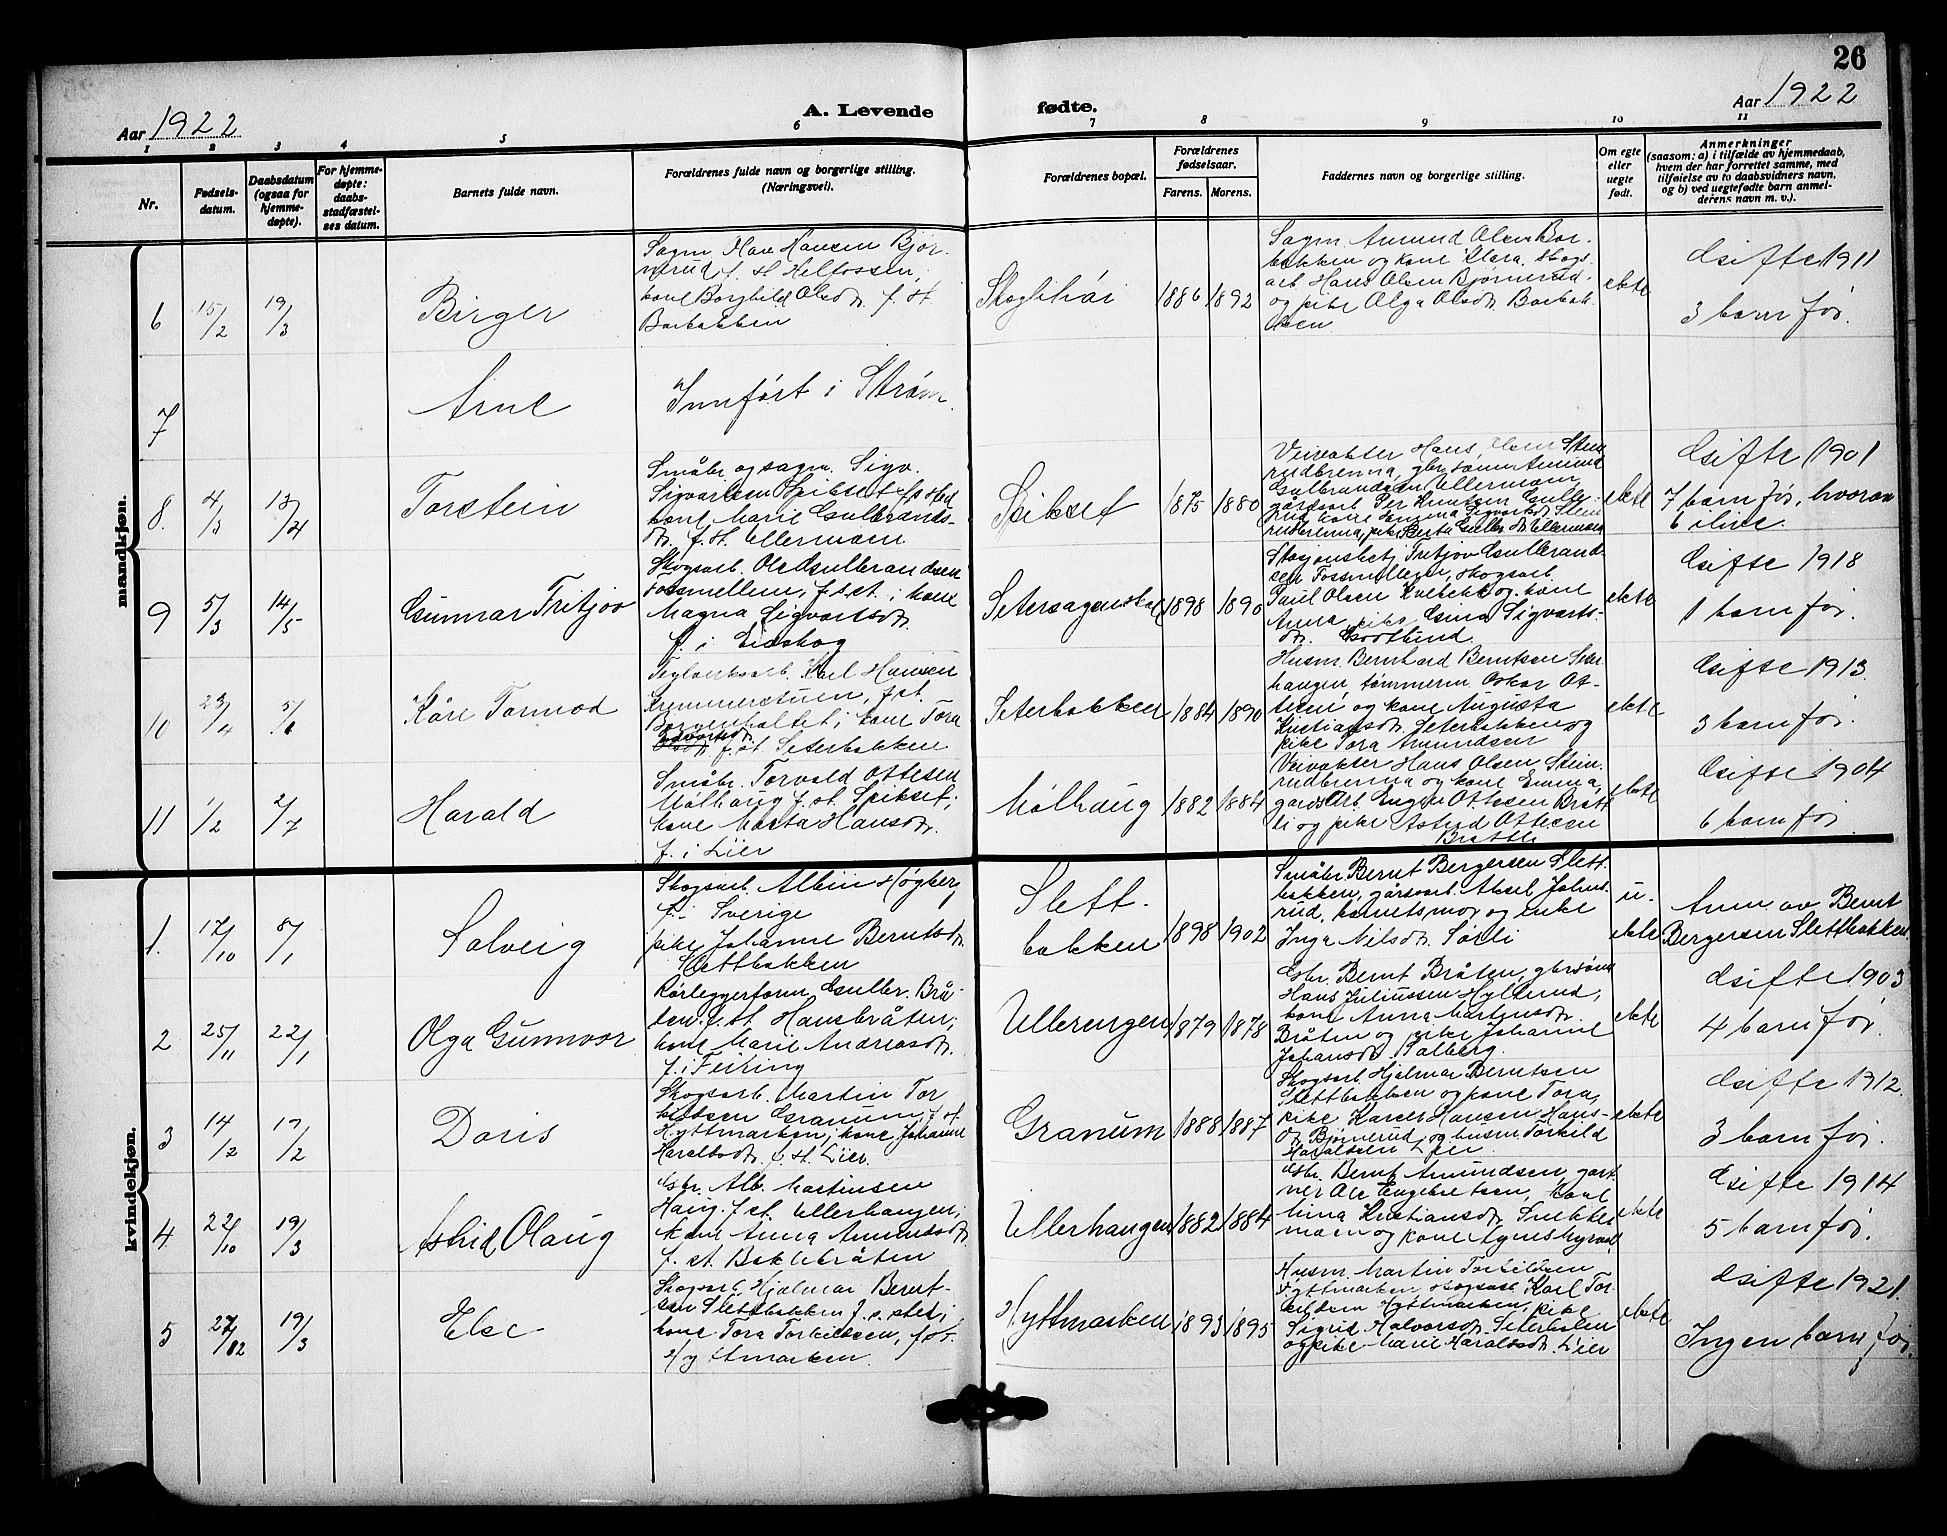 26
Aar 1922
A. Levende
fødte.
Aar 1922
1 2 3 4 5 6 7 8 9 10 11
Nr.
Fødsels-
datum.
Daabsdatum
(ogsaa for
hjemme-
døpte).
For hjemme-
døpte:
daabs-
stadfæstel-
ses datum.
Barnets fulde navn.
Forældrenes fulde navn og borgerlige stilling.
(Næringsvei).
Forældrenes bopæl.
Forældrenes
fødselsaar.
Farens. Morens.
Faddernes navn og borgerlige stilling.
Om egte
eller
uegte
født.
Anmerkninger
(saasom: a) i tilfælde av hjemmedaab,
hvem der har forrettet samme, med
tilføielse av to daabsvidners navn,
og b) ved uegtefødte barn anmel-
derens navn m. v.).
mandkjøn.
6
15/2
19/3
Birger
Sagm Hansen Bjør-
nerud f. st. Helfossen,
kone Borghild Olsdr. f. st.
Borbakken
1886 1892
Sagm. Amund Olsen Bor-
bakken og kone Klara, skogs-
arb. Hans Olsen Bjørnerud
og pike Olga Olsdr. Borbak-
ken
ekte
Gifte 1911
3 barn før.
7
Arne
Innført i Strøm.
8.
4/3
Torstein
Småbr. og sagm. Sigv.
Sigvartsen Spikset f. p. sted
kone Marie Gulbrands-
dr. f. st. Ullermoen
Spikset
1875 1880
Veivokter Hans Olsen Sten-
rudbrenna, gbr. sønn Amund
Gulbrandsen Ullermoen,
gårdsarb. Per Knutsen Gulle-
rud, kone
ekte
Gifte 1901
7 barn før, hvorav
6 i live.
9
5/3
14/5
Gunnar Fritjov
Skogsarb. Ole Gulbrandsen
Fossmellem, f. st.; kone
Magna Sigvartsdr.
f. i Eidskog
1898 1890
Fritjov Gulbrand-
sen
Paul Olsen og kone
Anna, pike Gina Sigvarts-
dr.
ekte
Gifte 1918
1 barn før.
10
23/4
5/6
Kåre Tormod
Teglverksarb. Karl Hansen
f. st.
Borgenholtet; kone Tora
Edvartsdr.
f. st. Seterbakken
Seterbakken
1884 1890
Husm. Bernhard Berntsen Seter-
haugen, tømmerm. Oskar Ot-
tesen og kone Augusta
Kristiansdr. Seterbakken og
pike Tora Amundsen
ekte
Gifte 1913
3 barn før.
11
1/2
2/7
Harald
Småbr. Torvald Ottesen
Mølhaug f. st. Spikset;
kone Marta Hansdr.
f. i Lier
Mølhaug
1882 1884
Veivokter Hans Olsen Sten-
rudbrenna og kone Emma,
gårdsarb. Ottesen Bråt-
li og pike Astrid Ottesen
Bråtli
ekte
Gifte 1904
6 barn før.
kvindekjøn.
1.
17/10
8/1
Solveig
Skogsarb. Albin Høgberg
f. i Sverige
pike Johanne Berntsdr.
Slettbakken
Slett-
bakken
1898 1902
Småbr. Bernt Bergersen Slett-
bakken, gårdsarb. Aksel Johns-
rud, barnets mor og enke
Inga Nilsdr. Sørli
u-
ekte
Anm. av Bernt
Bergersen Slettbakken.
2
25/11
22/1
Olga Gunnvor
Rørleggerform. Gulbr. Brå-
ten f. st. Hansbråten;
kone Marie Andreasdr.
f. i Feiring
Ullerengen
1879 1878
Gbr. Bernt Bråten, gbr.sønn
Hans Juliussen Hyllerud,
kone Anna Martinsdr.
Bråten og pike Johanne
Johansdr. Kalberg.
ekte
Gifte 1903
4 barn før.
3
14/2
17/2
Doris
Skogsarb. Martin Tor-
kildsen Granum, f. st.
Hyttmarken; kone Johanne
Haraldsdr. f. st. Lier.
Granum
1888 1887
Skogsarb. Hjalmar Berntsen
Slettbakken og kone Tora,
pike Karen Hansen Hans-
dr. Bjørnerud, og husm. Torkild
Haraldsen Lier
ekte
Gifte 1912.
3 barn før.
4
22/10
19/3
Astrid Olaug
Gbr. Alb. Martinsen
Haug f. st. Ullerhaugen;
kone Anna Amundsdr.
f. st. Bakkebråten
Ullerhaugen
1882 1884
Gbr. Bernt Amundsen, gart-
ner Ole Engebretsen, kone
Mina Kristiansdr. Snekker-
moen og kone Agnes Myrvold
ekte
Gifte 1914
5 barn før.
5
27/12
19/3
Else
Skogsarb. Hjalmar Bernt-
sen Slettbakken f. p. sted;
kone Tora Torkildsen, f. st.
Hyttmarken.
Hyttmarken
1893 1895
Husm. Martin Torkildsen
Hyttmarken, skogsarb. Karl Tor-
kildsen Hyttmarken, pike
Sigrid Halvorsdr. Seterbolen
og pike Marie Haraldsdr. Lier
ekte
Gifte 1921.
Ingen barn før.